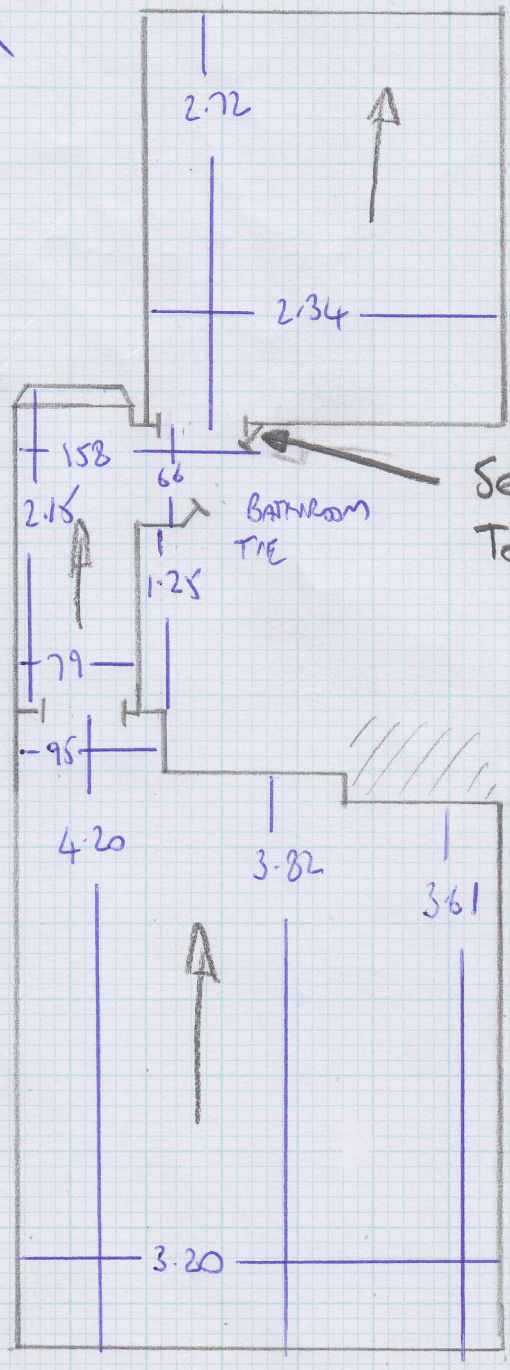 2.72
2.34
158
66
2.15
BATHROOM
TIE
Se
To
1.25
79
95
4.20
3.82
3.61
3.20